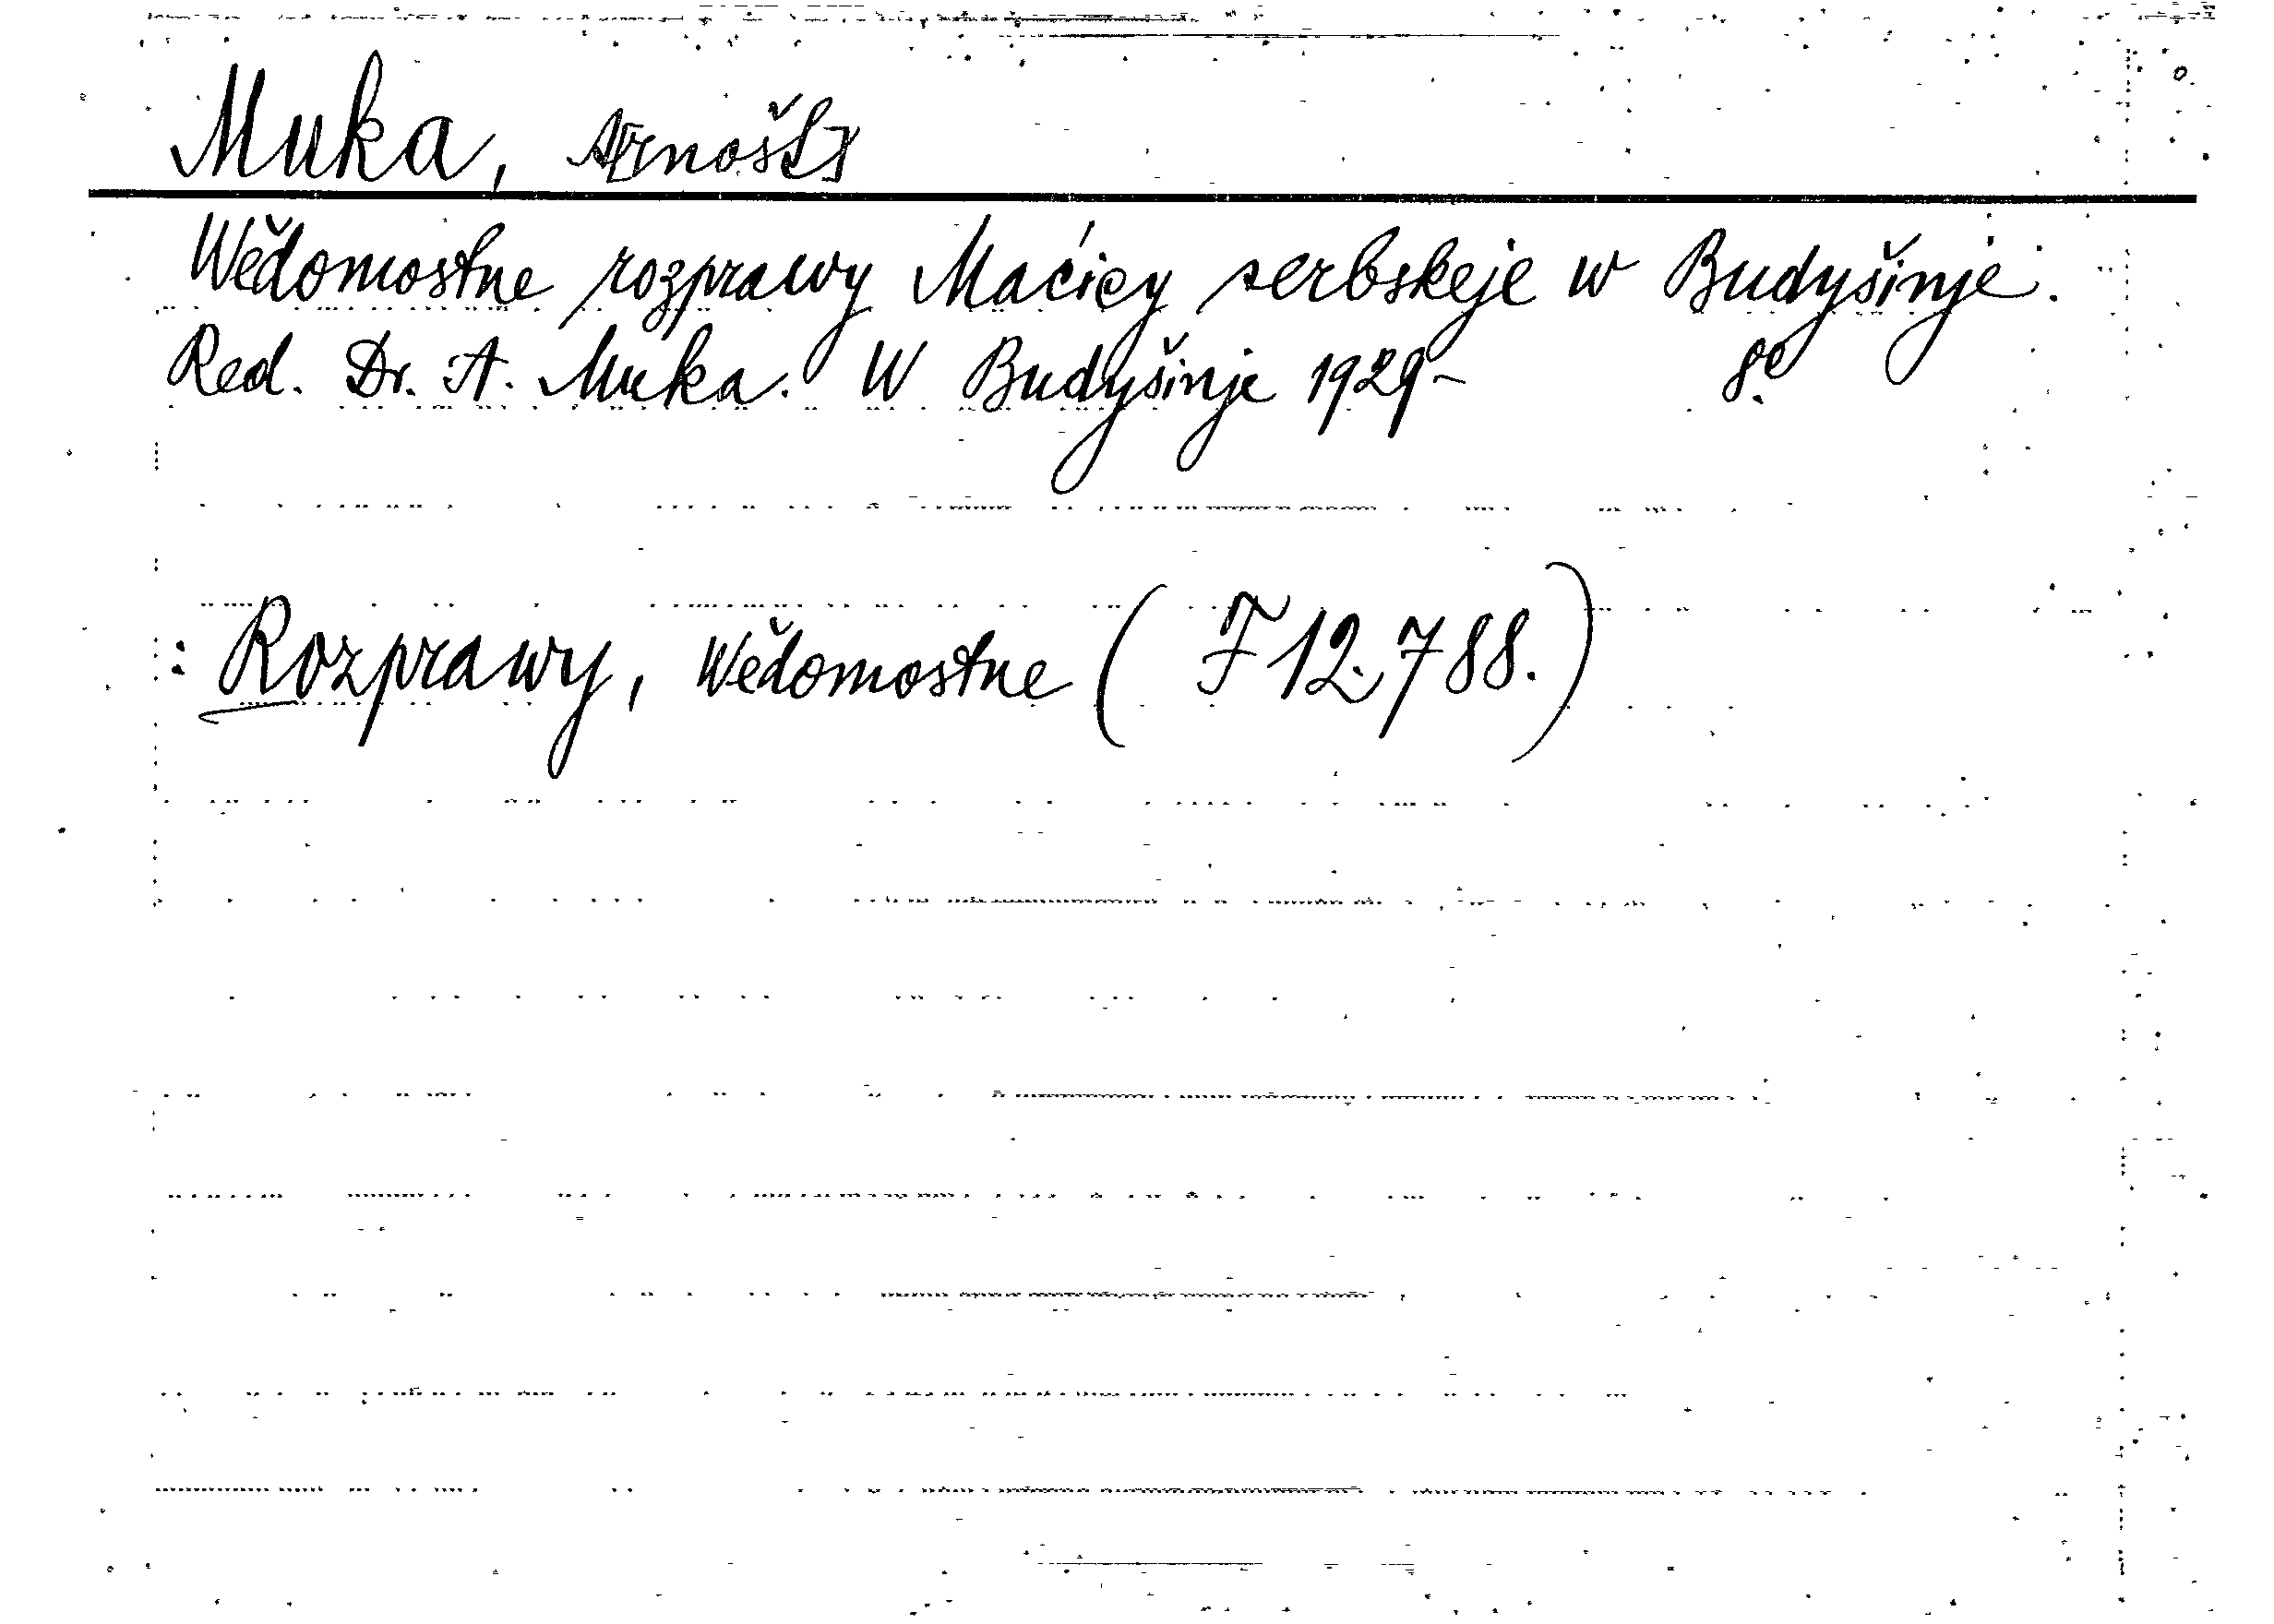 Muka, A[rnošt]
Wědomostne rozprawy Maćicy serbskeje w Budyšinje.
Red. Dr. A. Muka. W Budyšinje 1929- 8º.
: Rozprawy, Wědomostne (F 12.788.)